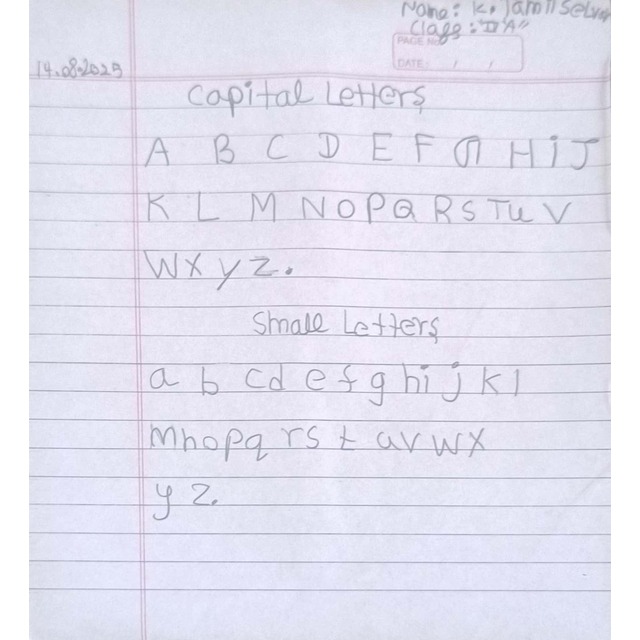 Name: K. Tamil Selvan
Class: "II A"
PAGE No.
DATE: / /
14.08.2025
Capital Letters
A B C D E F G H i J
K L M N O P Q R S T u V
W X y Z.
Small Letters
a b c d e f g h i j k l
M n o p q r s t u v w x
y z.